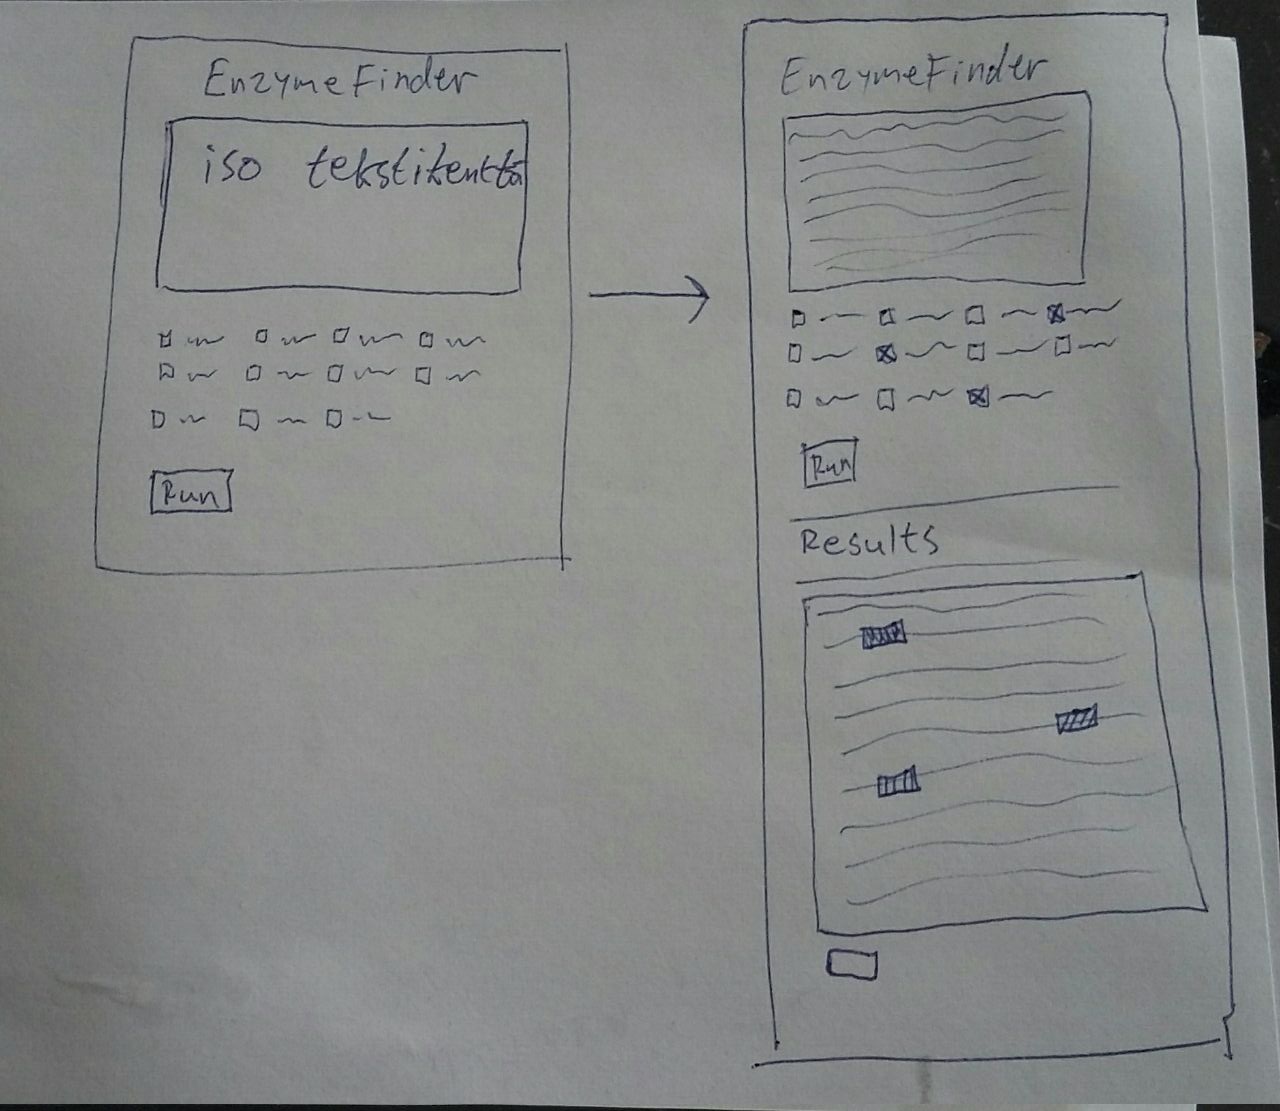 EnzymeFinder
iso tekstikenttä
Run
EnzymeFinder
Run
Results